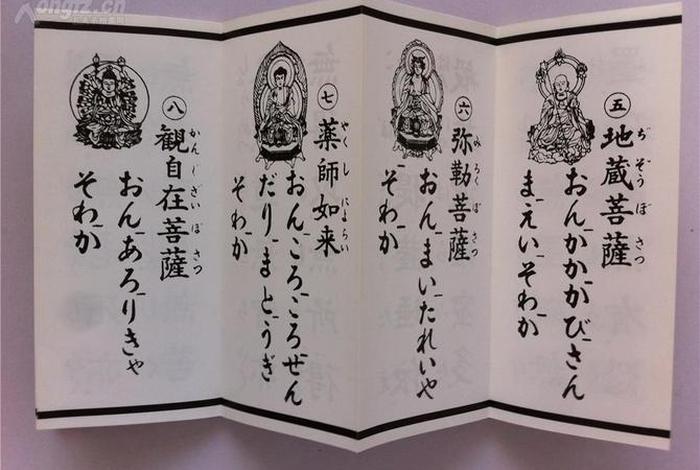 五 地蔵菩薩
ぢぞうぼさつ
おんかかかびさん
まえいそわか
六 弥勒菩薩
みろくぼさつ
おんまいたれいや
そわか
七 薬師如来
やくしにょらい
おんころころせん
だりまとうぎ
そわか
八 観自在菩薩
かんじざいぼさつ
おんあろりきゃ
そわか